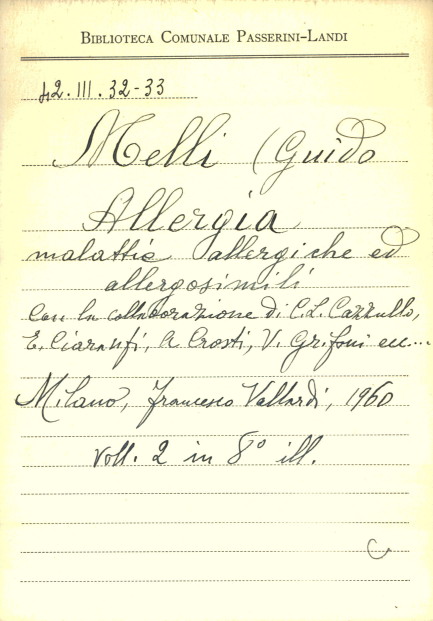 BIBLIOTECA COMUNALE PASSERINI-LANDI
42.III.32-33
Melli (Guido
Allergia
malattie allergiche ed
allergosimili
Con la collaborazione di C.L. Cazzullo,
E. Ciaranfi, A. Crosti, V. Grifoni ecc...
Milano, Francesco Vallardi, 1960
voll. 2 in 8° ill.
C